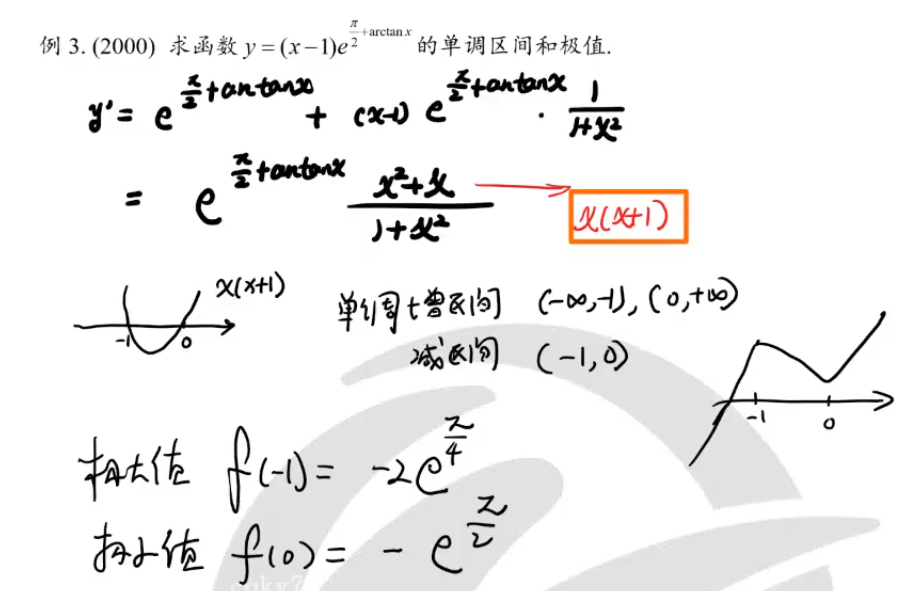 例 3. (2000) 求函数 y = (x−1)e^{π/2+arctan x} 的单调区间和极值.
y' = e^{π/2+arctanx} + (x-1) e^{π/2+arctanx} · 1/(1+x²)
= e^{π/2+arctanx} (x²+x)/(1+x²) → x(x+1)
x(x+1)
-1 0
单调增区间 (-∞,-1), (0,+∞)
减区间 (-1,0)
-1 0
极大值 f(-1) = -2e^{π/4}
极小值 f(0) = - e^{π/2}